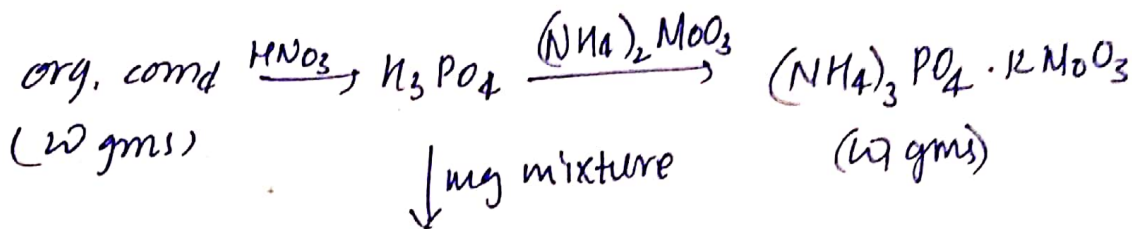 org. comd HNO3 → H3PO4 (NH4)2 MoO3 → (NH4)3 PO4 . 12 MoO3
(W gms) (W1 gms)
↓ mg mixture